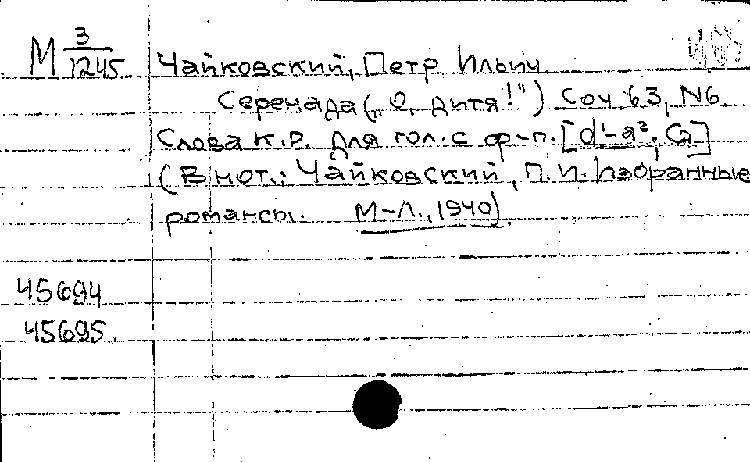 М 3/1245
Чайковский, Петр Ильич
Серенада („О, дитя!") Соч 63, N6
Слова К.Р. Для гол. с ф-п. [d'-a², G]
(В нот.: Чайковский, П.И. Избранные
романсы. М-Л., 1940).
45694
45695.